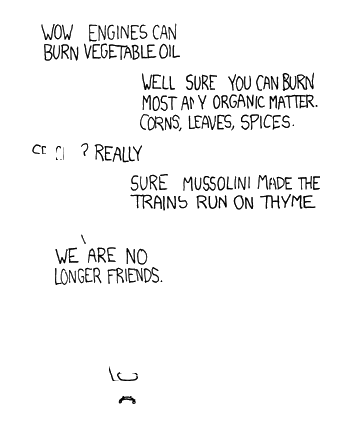 WOW ENGINES CAN
BURN VEGETABLE OIL
WELL SURE YOU CAN BURN
MOST ANY ORGANIC MATTER.
CORNS, LEAVES, SPICES.
? REALLY
SURE MUSSOLINI MADE THE
TRAINS RUN ON THYME
WE ARE NO
LONGER FRIENDS.